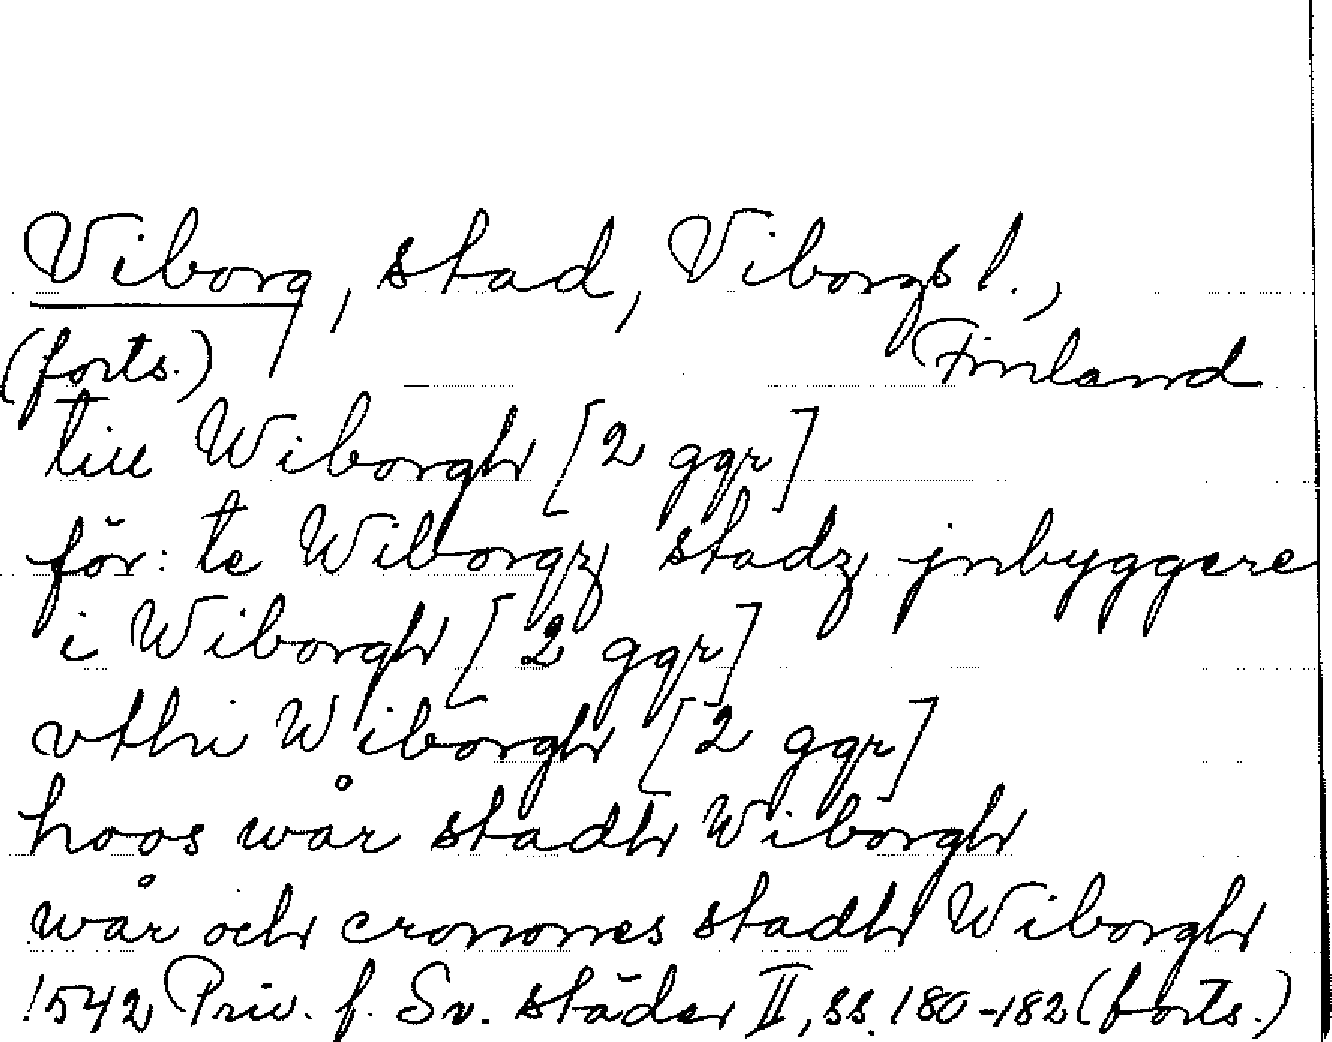 Viborg, stad, Viborgs l.,
(forts.) Finland
till Wiborgh [2 ggr]
för: te Wiborgz stadz jnbyggere
i Wiborgh [2 ggr]
vthi Wiborgh [2 ggr]
hoos wår stadh Wiborgh
wår och cronones stadh Wiborgh
1542 Priv. f. Sv. städer II, ss. 180-182 (forts.)